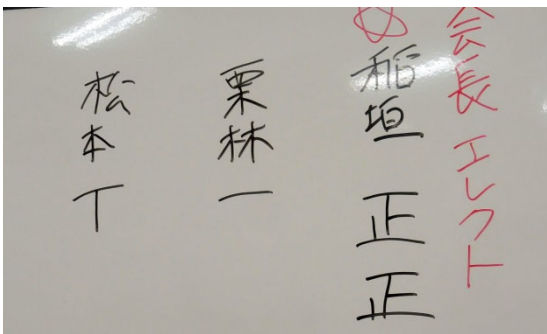 会長エレクト
稲垣 正正
栗林 一
松本 丅